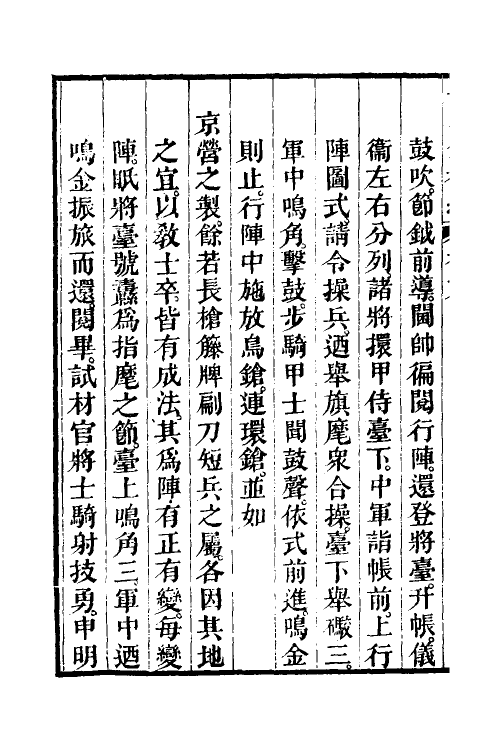 鼓吹。節鉞前導。閫帥徧閱行陣。還登將臺。升帳。儀
衞左右分列。諸將擐甲侍臺下。中軍詣帳前。上行
陣圖式。請令操兵。迺舉旗麾衆合操。臺下舉礮三。
軍中鳴角。擊鼓。步騎甲士聞鼓聲。依式前進。鳴金
則止。行陣中施放鳥鎗。連環鎗。並如
京營之製。餘若長槍籐牌㓲刀短兵之屬。各因其地
之宜。以敎士卒。皆有成法。其爲陣有正有變。每變
陣。眂將臺號纛爲指麾之節。臺上鳴角三。軍中迺
鳴金振旅而還。閱畢。試材官將士騎射技勇。申明